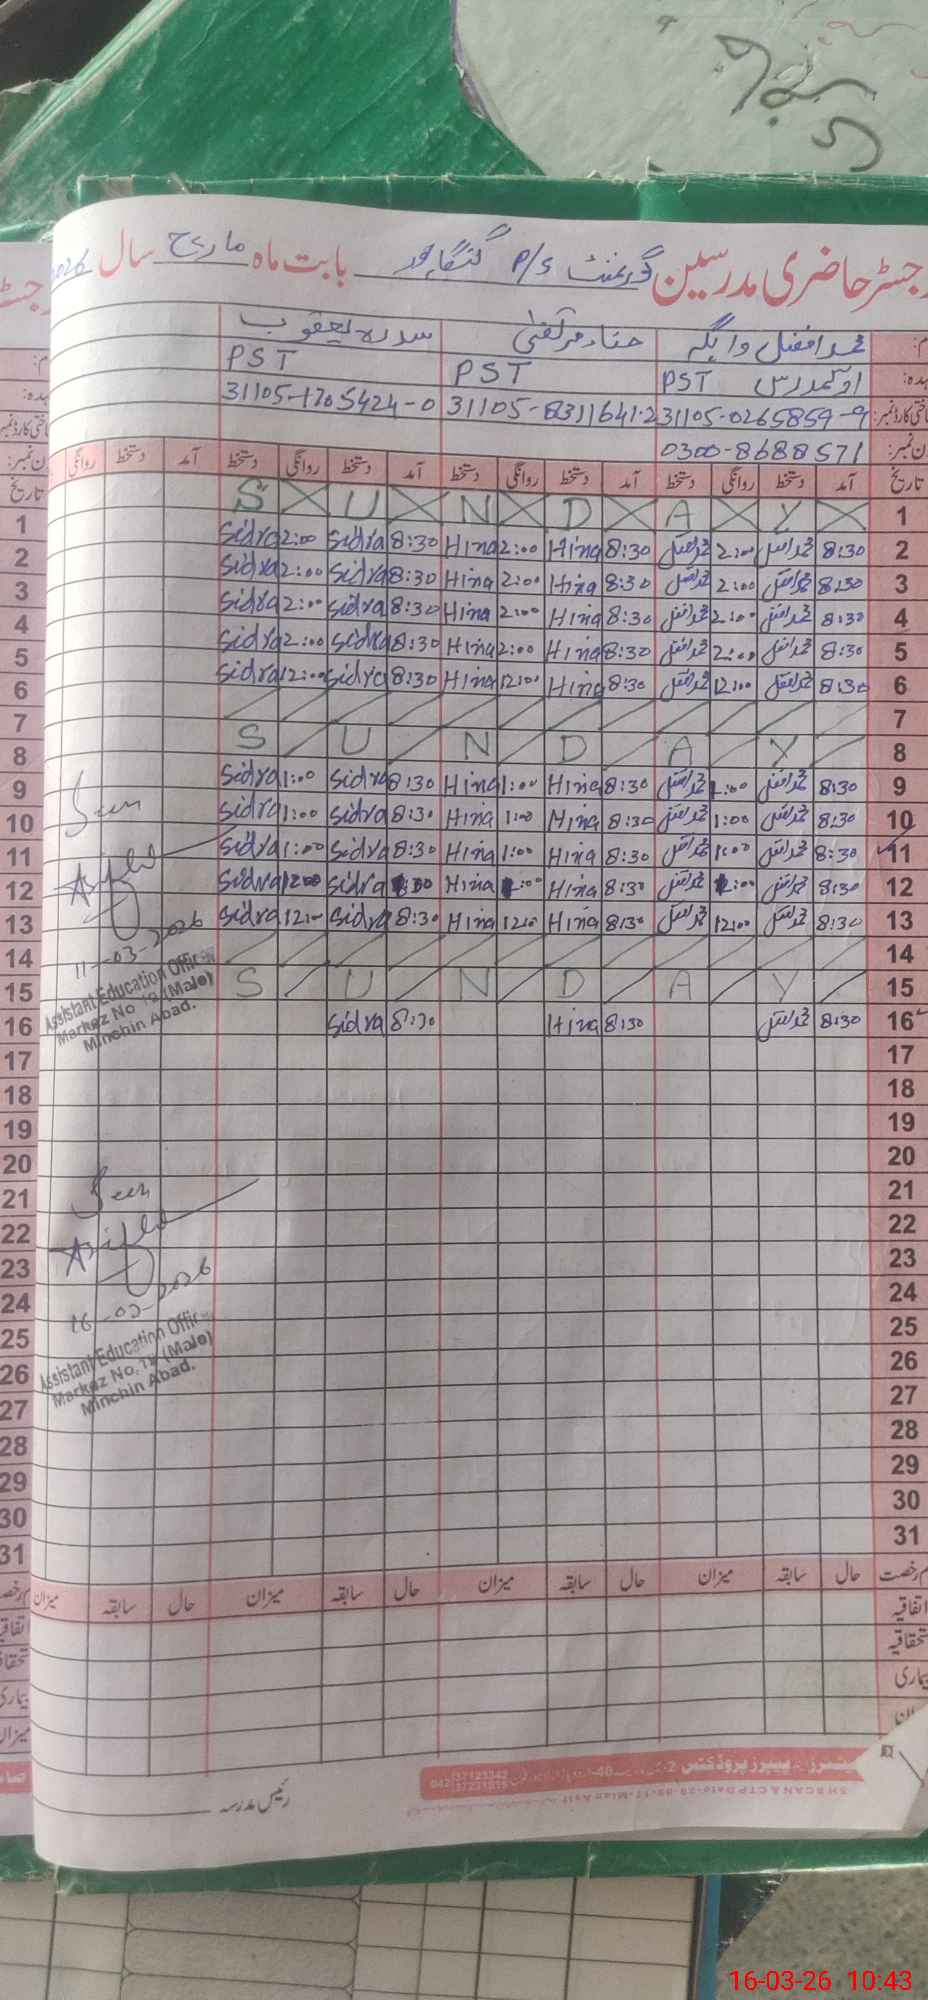 رجسٹر حاضری مدرسین گورنمنٹ P/S گنگاپور بابت ماہ مارچ سال 2026
محمد افضل وابگہ حناء مرتضیٰ سدرہ یعقوب
اول مدرس PST PST PST
31105-0265859-9 31105-8311641-2 31105-1205424-0
0300-8688571
تاریخ آمد دستخط روانگی دستخط آمد دستخط روانگی دستخط آمد دستخط روانگی دستخط آمد دستخط روانگی
1 S U N D A Y 1
2 Sidra 2:00 Sidra 8:30 Hina 2:00 Hina 8:30 محمد افضل 2:00 محمد افضل 8:30 2
3 Sidra 2:00 Sidra 8:30 Hina 2:00 Hina 8:30 محمد افضل 2:00 محمد افضل 8:30 3
4 Sidra 2:00 Sidra 8:30 Hina 2:00 Hina 8:30 محمد افضل 2:00 محمد افضل 8:30 4
5 Sidra 2:00 Sidra 8:30 Hina 2:00 Hina 8:30 محمد افضل 2:00 محمد افضل 8:30 5
6 Sidra 12:00 Sidra 8:30 Hina 12:00 Hina 8:30 محمد افضل 12:00 محمد افضل 8:30 6
7 7
8 S U N D A Y 8
9 Sidra 1:00 Sidra 8:30 Hina 1:00 Hina 8:30 محمد افضل 1:00 محمد افضل 8:30 9
10 Sidra 1:00 Sidra 8:30 Hina 1:00 Hina 8:30 محمد افضل 1:00 محمد افضل 8:30 10
11 Sidra 1:00 Sidra 8:30 Hina 1:00 Hina 8:30 محمد افضل 1:00 محمد افضل 8:30 11
12 Sidra Sidra Hina Hina 8:30 محمد افضل محمد افضل 8:30 12
13 Sidra 12:00 Sidra 8:30 Hina 12:00 Hina 8:30 محمد افضل 12:00 محمد افضل 8:30 13
14 14
15 S U N D A Y 15
16 Sidra 8:30 Hina 8:30 محمد افضل 8:30 16
Seen
11-03-2026
Assistant Education Officer
Markaz No 12 (Male)
Minchin Abad.
17 17
18 18
19 19
20 20
21 21
22 22
23 23
24 24
25 25
26 26
27 27
28 28
29 29
30 30
31 31
Seen
16-03-2026
Assistant Education Officer
Markaz No. 12 (Male)
Minchin Abad.
رخصت حال سابقہ میزان حال سابقہ میزان حال سابقہ میزان حال سابقہ میزان
اتفاقیہ
استحقاقیہ
بیماری
میزان
رئیس مدرسہ
042 37123342
37231815
16-03-26 10:43